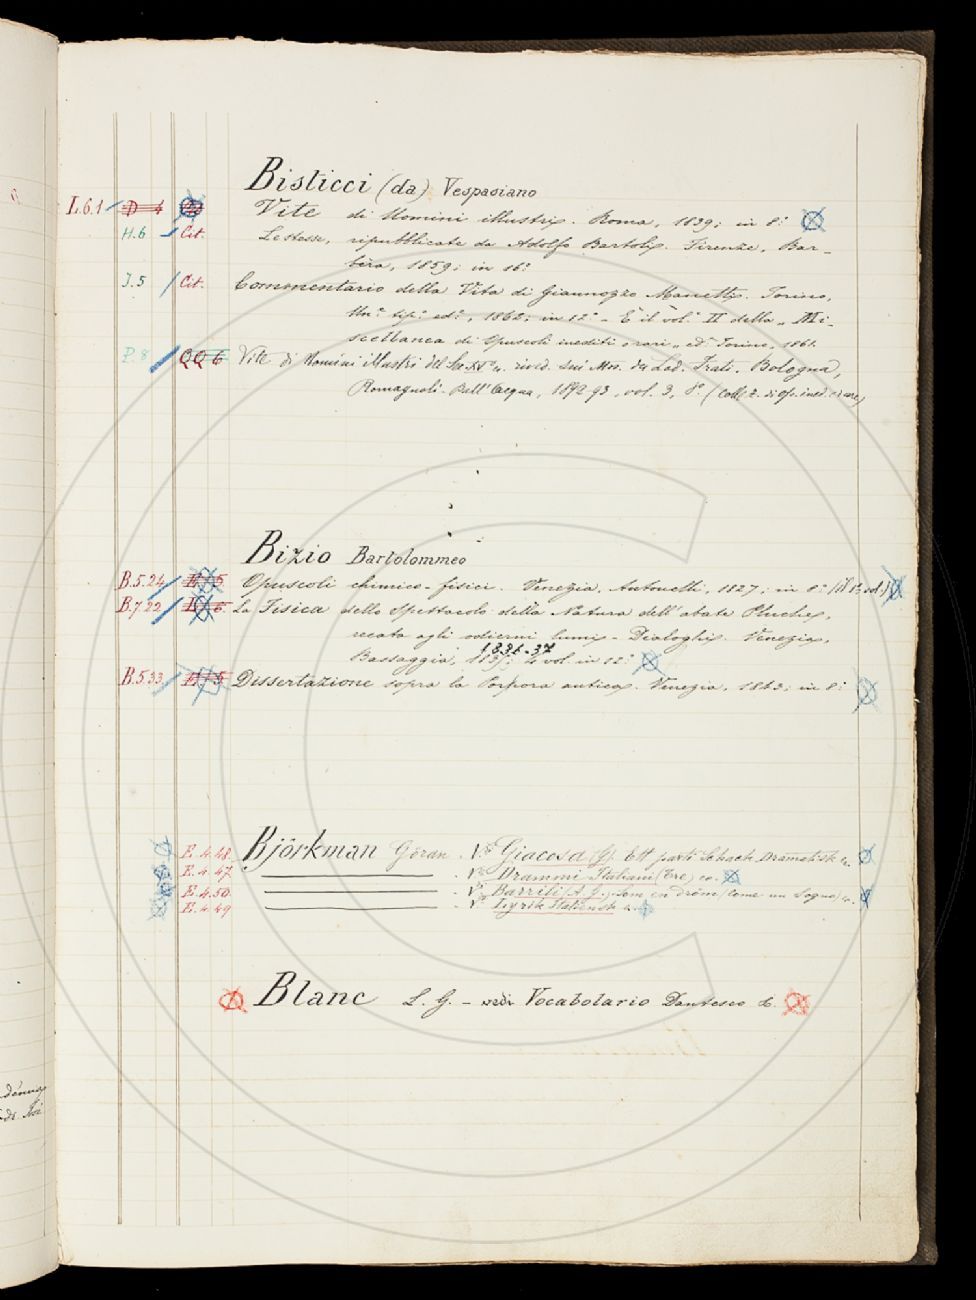 Bisticci (da) Vespasiano
I.6.1 D 4 Vite di Uomini illustri. Roma, 1839; in 8.°
H.6 Cit. Le stesse, ripubblicate da Adolfo Bartoli. Firenze, Bar-
bèra, 1859; in 16.°
J.5 Cit. Commentario della Vita di Giannozzo Manetti. Torino,
Un.e tip.e ed.e, 1862; in 12.° - È il vol. II della „ Mi-
scellanea di Opuscoli inediti o rari „ ed. Torino, 1861.
P.8 QQ 6 Vite di Uomini illustri del Sec. XV rived. sui Mss. da Lod. Frati. Bologna,
Romagnoli-Dall'Acqua, 1892 93, vol. 3, 8.° (Collez. di Op. ined. o rare)
Bizio Bartolommeo
B.5.24 Opuscoli chimico-fisici. Venezia, Antonelli, 1827; in 8.°
B.7.22 La Fisica dello Spettacolo della Natura dell'abate Pluche,
recata agli odierni lumi - Dialoghi. Venezia,
1831-37
Bassaggia, 4 vol. in 12.°
B.5.33 Dissertazione sopra la Porpora antica. Venezia, 1843; in 8.°
E.4.48 Björkman Göran. V.e Giacosa (G). Ett parti Schach, Dramatisk
E.4.47 V.e Drammi Italiani (Tre)
E.4.50 V.e Barrili (A. G.) Som en dröm (Come un Sogno)
E.4.49 V.e Lyrik Italiensk
Blanc L. G. - vedi Vocabolario Dantesco &